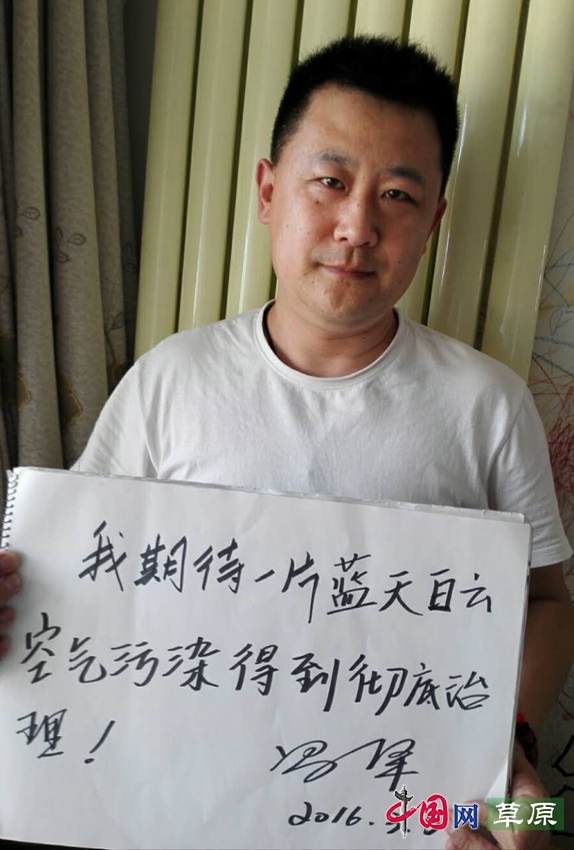 我期待一片蓝天白云
空气污染得到彻底治
理！
2016.
中国网 草原